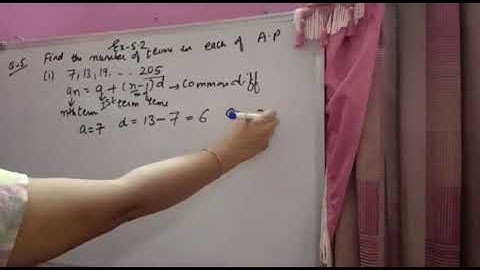 Ex-5.2
Q.5. Find the number of terms in each of A.P
(i) 7, 13, 19, ... 205
an = a + (n-1)d → Common diff
nth term 1st term
a=7 d = 13-7 = 6